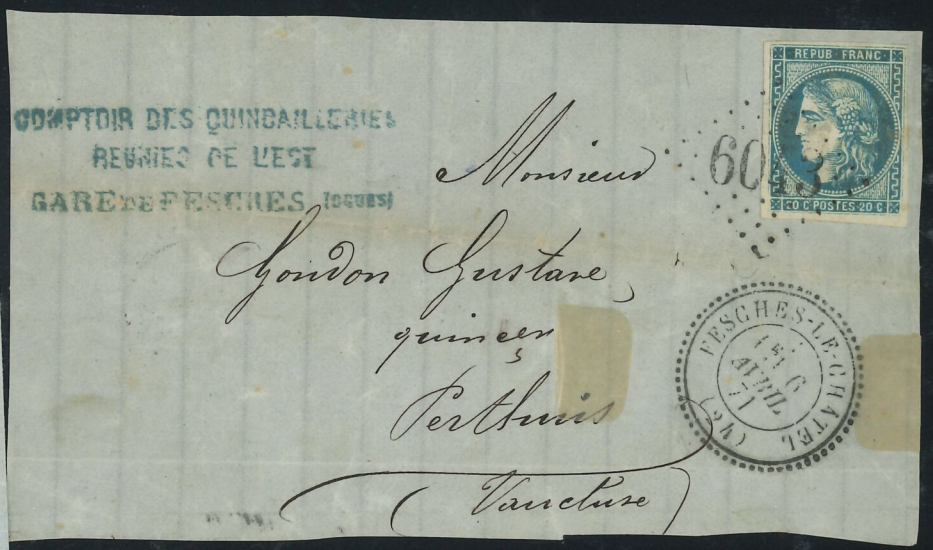 COMPTOIR DES QUINCAILLERIES
REUNIES DE L'EST
GARE DE FESCHES (DOUBS)
REPUB. FRANC.
20 C POSTES 20 C
Monsieur
Gondon Gustave
quincer
Perthuis
(Vaucluse)
FESCHES-LE-CHATEL
6
AVRIL
71